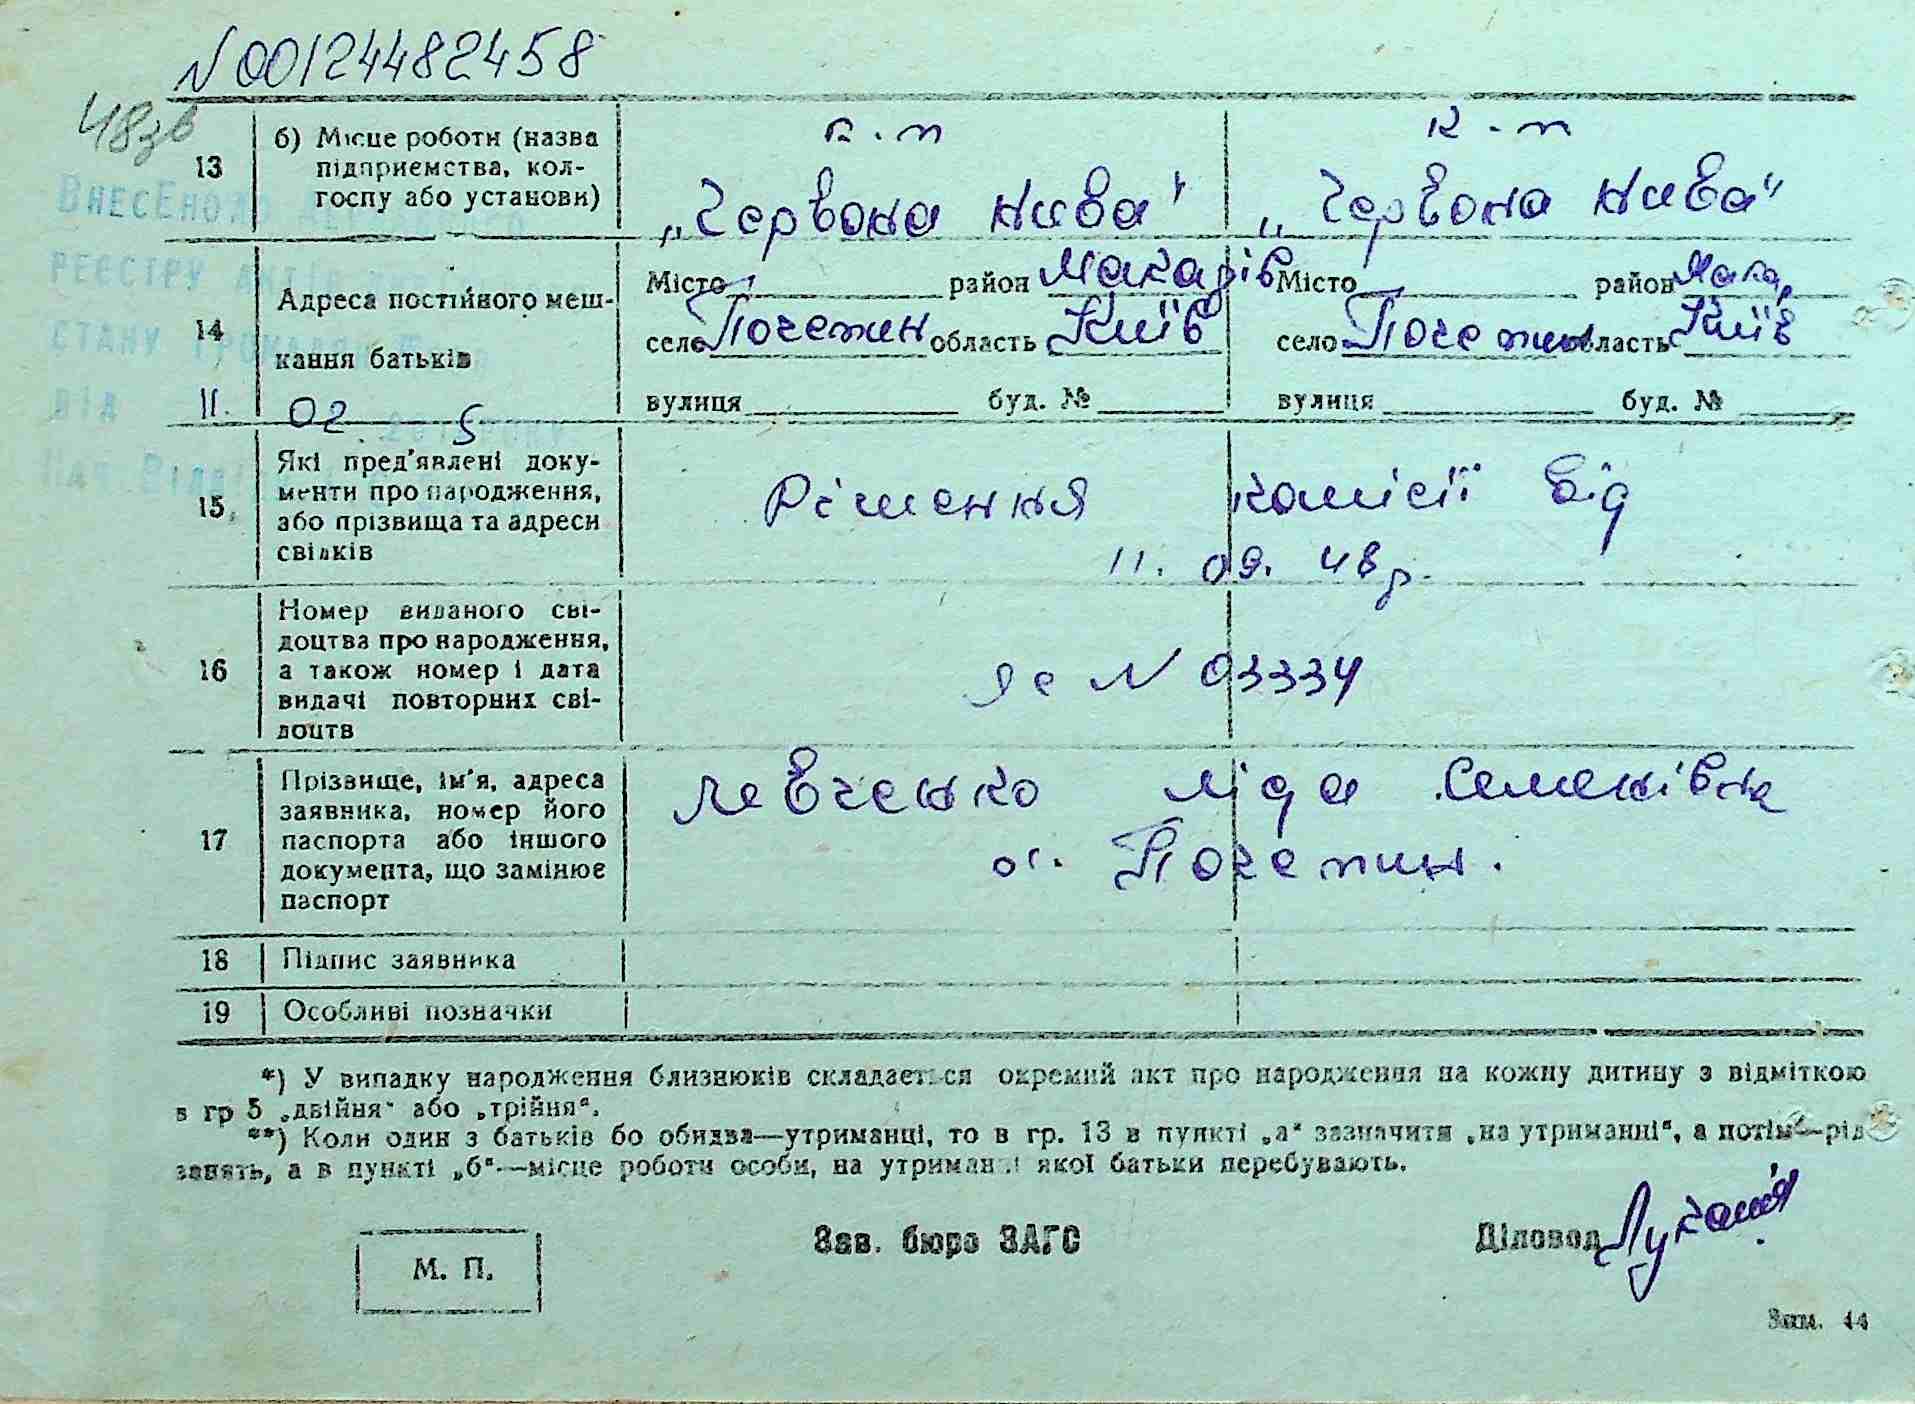 N 00124482458
48зв
13 б) Місце роботи (назва підприємства, колгоспу або установи)
к-п „Червона нива"
к-п „Червона нива"
ВНЕСЕНО ДО
РЕЄСТРУ АКТІВ
СТАНУ ГРОМАДЯН
ВІД
11. 02 5
14 Адреса постійного мешкання батьків
Місто район Макарів
село Почепин область Київ
вулиця буд. №
Місто район Мака
село Почепин область Київ
вулиця буд. №
15 Які пред'явлені документи про народження, або прізвища та адреси свідків
Рішення комісії від
11. 09. 48 р.
16 Номер виданого свідоцтва про народження, а також номер і дата видачі повторних свідоцтв
N 03334
17 Прізвище, ім'я, адреса заявника, номер його паспорта або іншого документа, що замінює паспорт
Левченко Ліда Семенівна
с. Почепин.
18 Підпис заявника
19 Особливі позначки
*) У випадку народження близнюків складається окремий акт про народження на кожну дитину з відміткою
в гр 5 „двійня" або „трійня".
**) Коли один з батьків бо обидва—утриманці, то в гр. 13 в пункті „а" зазначити „на утриманні", а потім—рід
занять, а в пункті „б"—місце роботи особи, на утриманні якої батьки перебувають.
М. П.
Зав. бюро ЗАГС
Діловод
Зам. 44